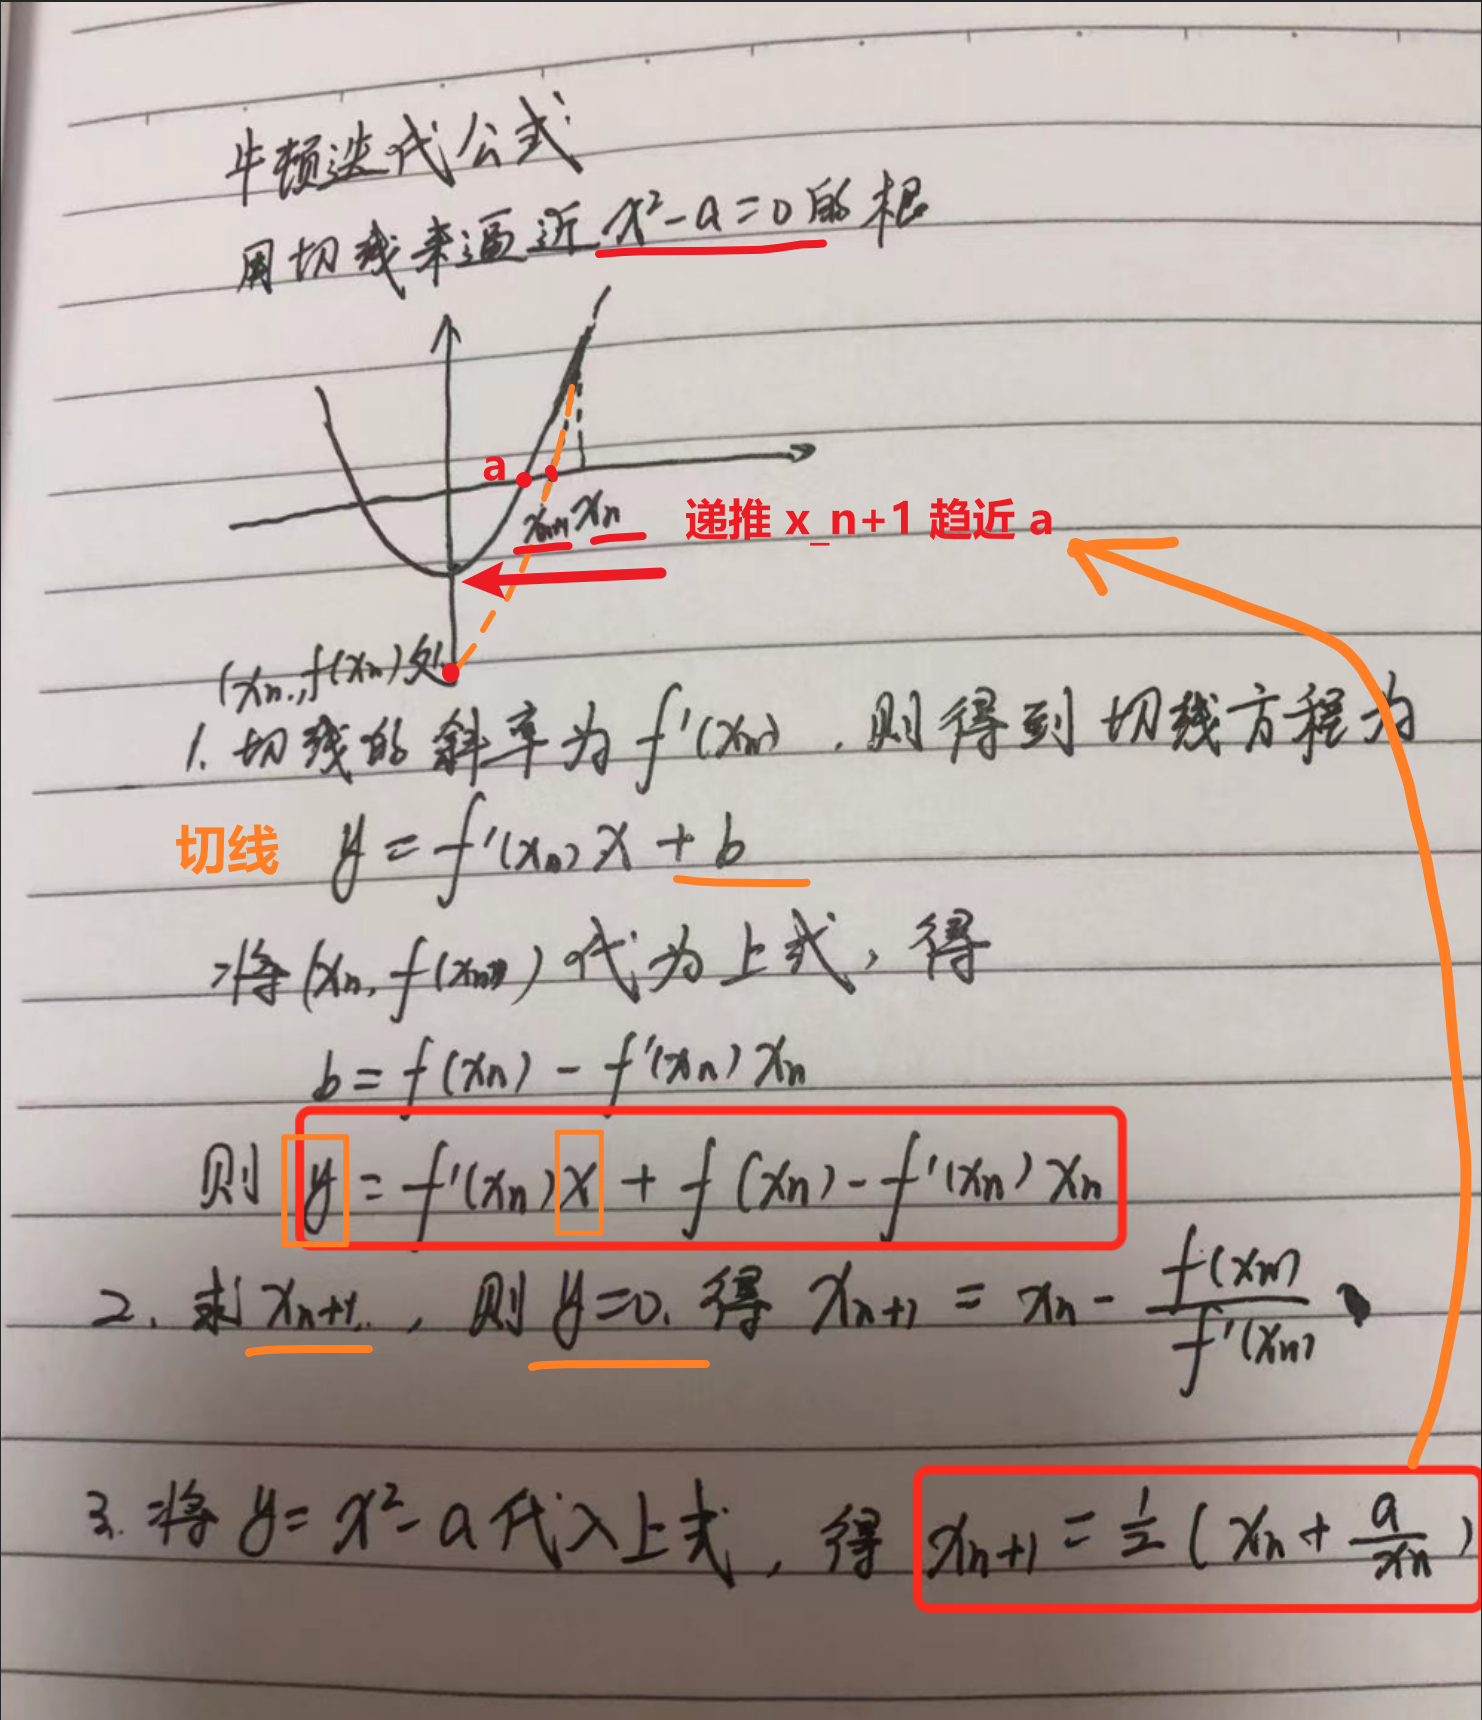 牛顿迭代公式:
用切线来逼近 x²-a=0 的根
a
x_{n+1} x_n
递推 x_n+1 趋近 a
(x_n, f(x_n))处
1. 切线的斜率为 f'(x_n), 则得到切线方程为
切线 y = f'(x_n) x + b
将(x_n, f(x_n))代为上式, 得
b = f(x_n) - f'(x_n) x_n
则 y = f'(x_n) x + f(x_n) - f'(x_n) x_n
2. 求 x_{n+1}, 则 y=0. 得 x_{n+1} = x_n - f(x_n)/f'(x_n)
3. 将 y = x²-a 代入上式, 得 x_{n+1} = 1/2 (x_n + a/x_n)